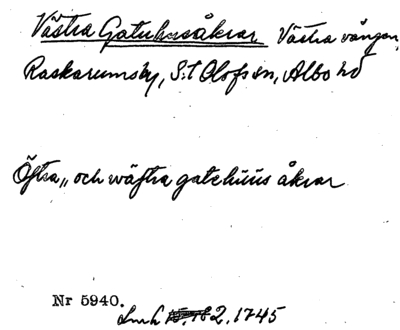 Västra Gatuhusåkrar Västra vången,
Raskarumsby, S:t Olofs sn, Albo hd
Östra„ och wästra gatehuus åkrar
Nr 5940.
Lmh 2. 1745